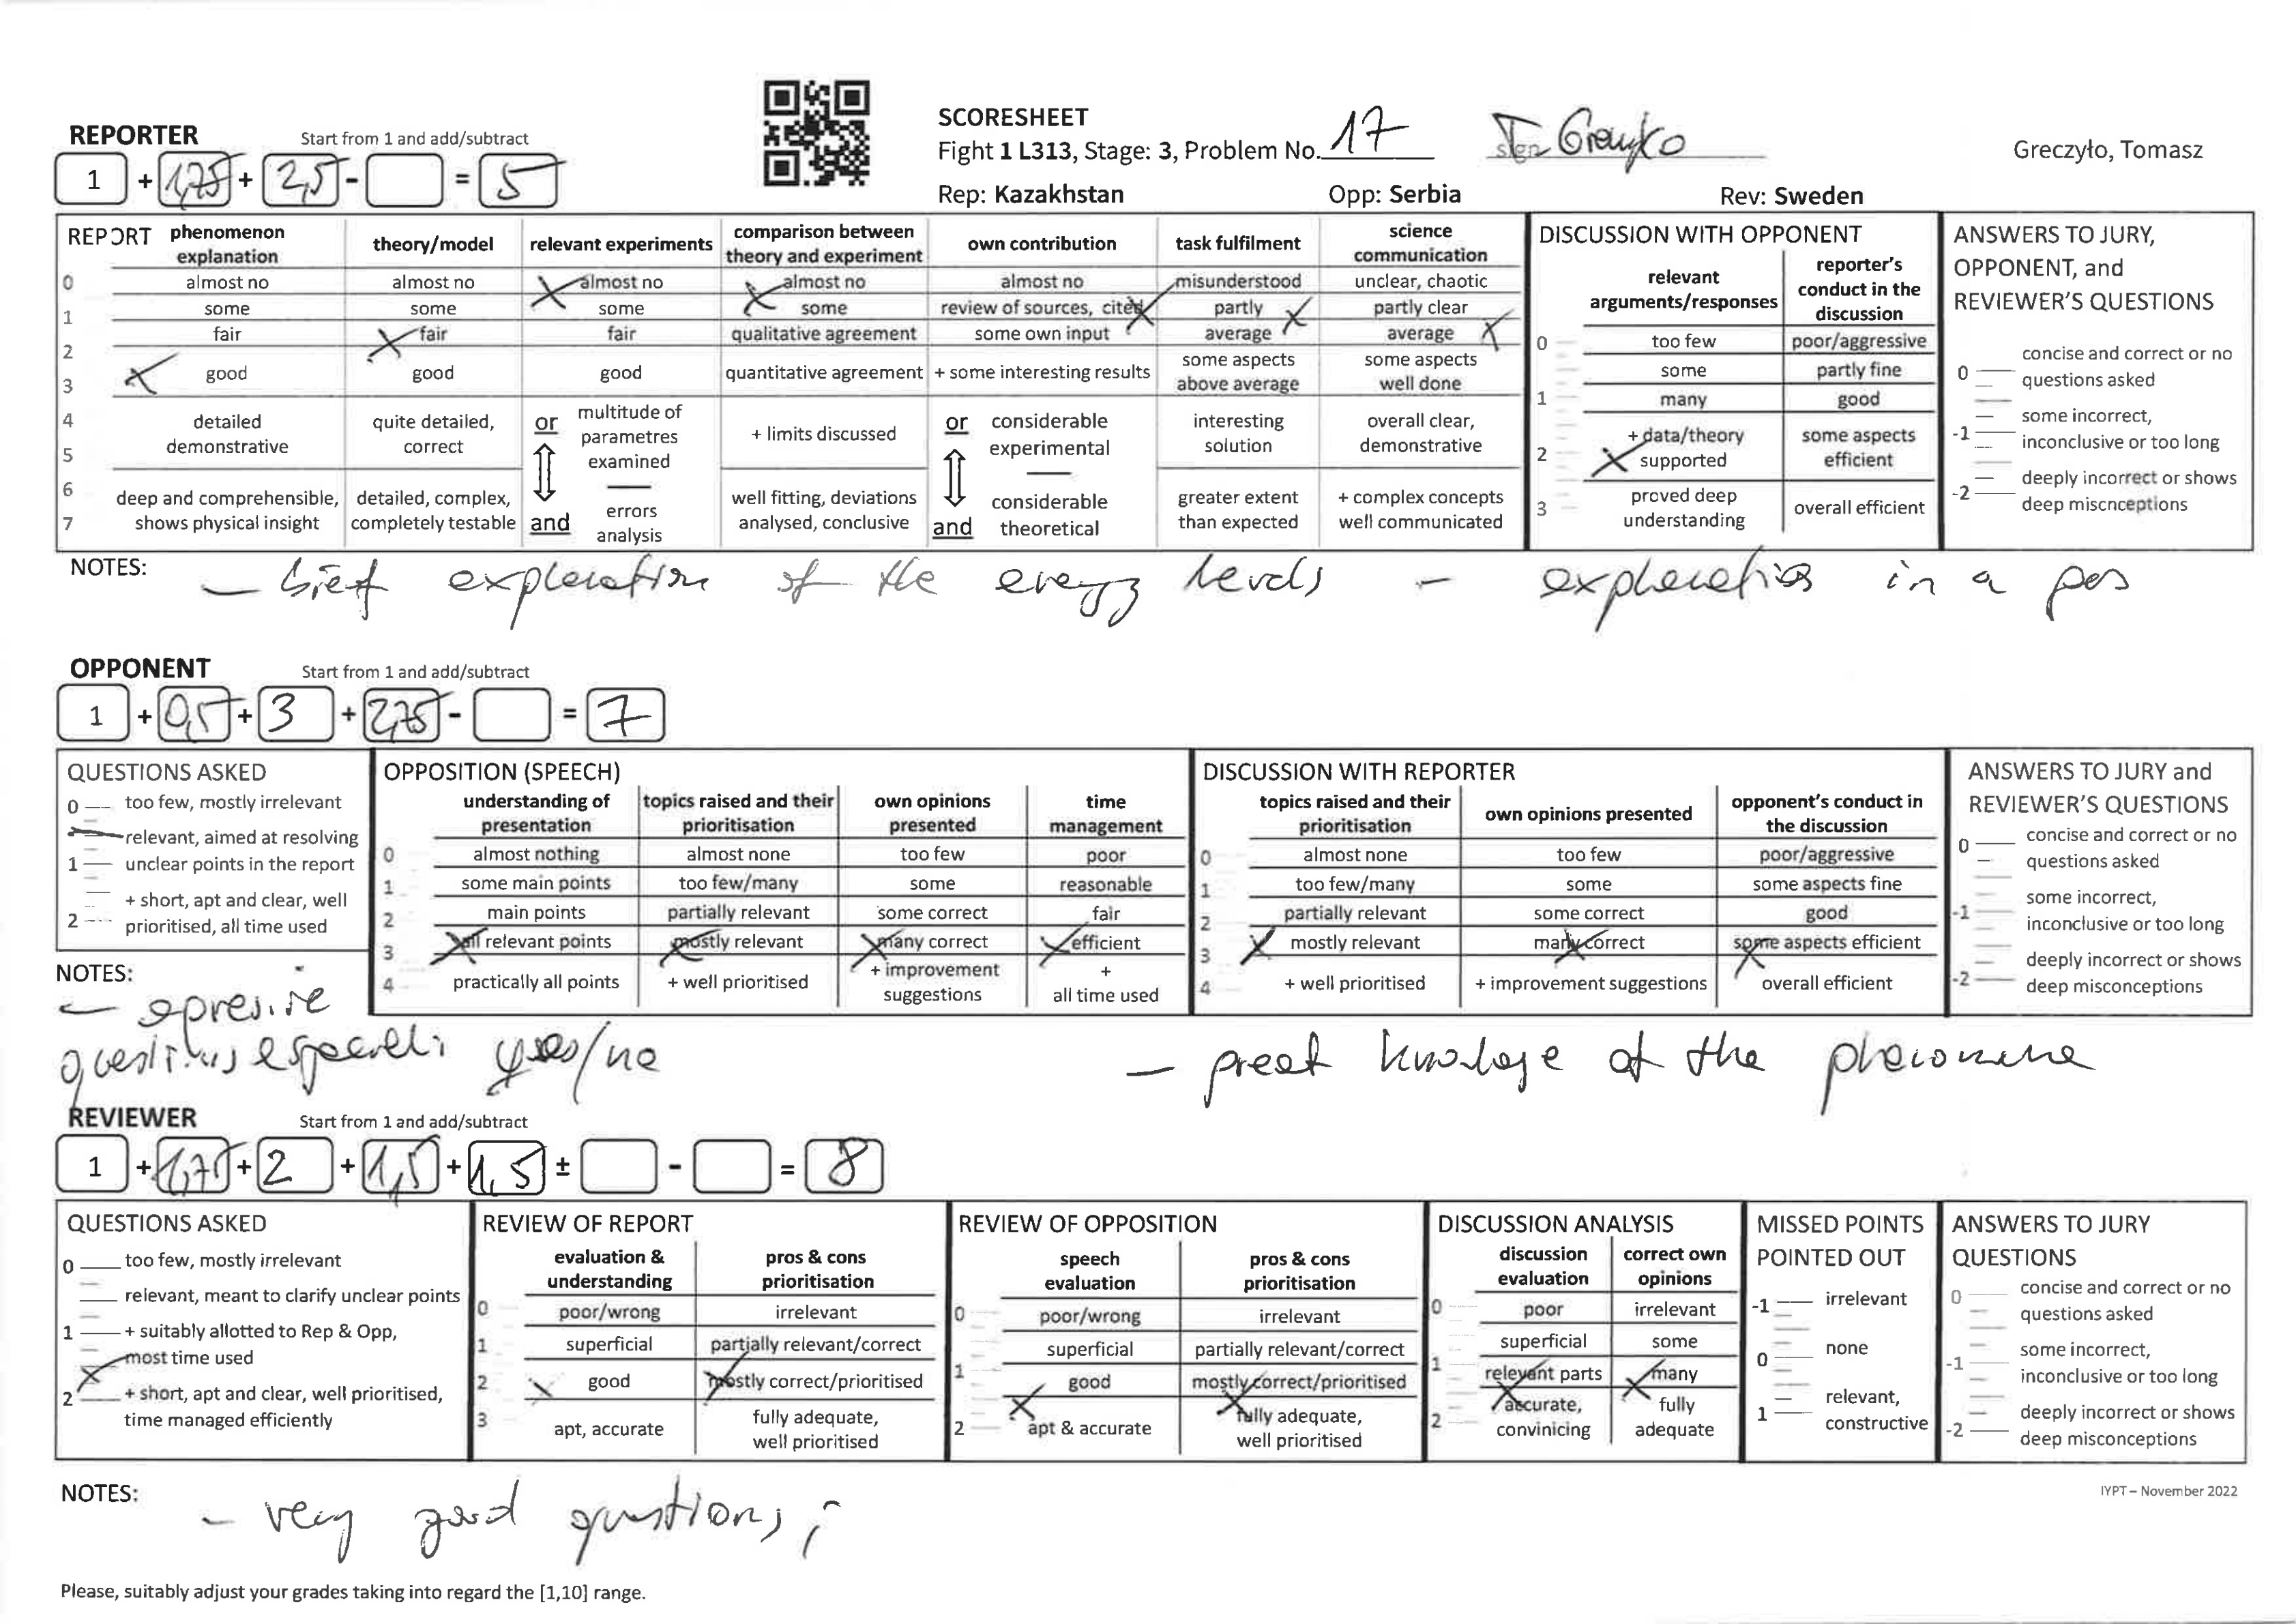 REPORTER Start from 1 and add/subtract
1 + 1,75 + 2,5 - = 5
SCORESHEET
Fight 1 L313, Stage: 3, Problem No. 17
Greczyło, Tomasz
Rep: Kazakhstan Opp: Serbia Rev: Sweden
REPORT
phenomenon explanation
theory/model
relevant experiments
comparison between theory and experiment
own contribution
task fulfilment
science communication
0 almost no almost no almost no almost no almost no misunderstood unclear, chaotic
some some some some review of sources, cited partly partly clear
1
fair fair fair qualitative agreement some own input average average
2
good good good quantitative agreement + some interesting results some aspects above average some aspects well done
3
4
detailed demonstrative
quite detailed, correct
or multitude of parametres examined
+ limits discussed
or considerable experimental
interesting solution
overall clear, demonstrative
5
6
deep and comprehensible, shows physical insight
detailed, complex, completely testable
and errors analysis
well fitting, deviations analysed, conclusive
and considerable theoretical
greater extent than expected
+ complex concepts well communicated
7
DISCUSSION WITH OPPONENT
relevant arguments/responses
reporter's conduct in the discussion
0 too few poor/aggressive
some partly fine
1 many good
+ data/theory supported some aspects efficient
2
3 proved deep understanding overall efficient
ANSWERS TO JURY,
OPPONENT, and
REVIEWER'S QUESTIONS
0 concise and correct or no
questions asked
some incorrect,
-1 inconclusive or too long
deeply incorrect or shows
-2 deep miscnceptions
NOTES: – brief explanation of the energy levels – in a
OPPONENT Start from 1 and add/subtract
1 + 0,5 + 3 + 2,75 - = 7
QUESTIONS ASKED
0 too few, mostly irrelevant
relevant, aimed at resolving
1 unclear points in the report
+ short, apt and clear, well
2 prioritised, all time used
OPPOSITION (SPEECH)
understanding of presentation
topics raised and their prioritisation
own opinions presented
time management
0 almost nothing almost none too few poor
1 some main points too few/many some reasonable
main points partially relevant some correct fair
2
all relevant points mostly relevant many correct efficient
3
4 practically all points + well prioritised + improvement suggestions + all time used
DISCUSSION WITH REPORTER
topics raised and their prioritisation
own opinions presented
opponent's conduct in the discussion
0 almost none too few poor/aggressive
1 too few/many some some aspects fine
partially relevant some correct good
2
mostly relevant many correct some aspects efficient
3
4 + well prioritised + improvement suggestions overall efficient
ANSWERS TO JURY and
REVIEWER'S QUESTIONS
0 concise and correct or no
questions asked
some incorrect,
-1 inconclusive or too long
deeply incorrect or shows
-2 deep misconceptions
NOTES:
questions yes/no
– great of the
REVIEWER Start from 1 and add/subtract
1 + 1,75 + 2 + 1,5 + 1,5 ± - = 8
QUESTIONS ASKED
0 too few, mostly irrelevant
relevant, meant to clarify unclear points
1 + suitably allotted to Rep & Opp,
most time used
2 + short, apt and clear, well prioritised,
time managed efficiently
REVIEW OF REPORT
evaluation & understanding
pros & cons prioritisation
0 poor/wrong irrelevant
1 superficial partially relevant/correct
2 good mostly correct/prioritised
3 apt, accurate fully adequate, well prioritised
REVIEW OF OPPOSITION
speech evaluation
pros & cons prioritisation
0 poor/wrong irrelevant
superficial partially relevant/correct
1
good mostly correct/prioritised
2 apt & accurate fully adequate, well prioritised
DISCUSSION ANALYSIS
discussion evaluation
correct own opinions
0 poor irrelevant
superficial some
1 relevant parts many
2 accurate, convinicing fully adequate
MISSED POINTS
POINTED OUT
-1 irrelevant
0 none
relevant,
1 constructive
ANSWERS TO JURY
QUESTIONS
0 concise and correct or no
questions asked
some incorrect,
-1 inconclusive or too long
deeply incorrect or shows
-2 deep misconceptions
NOTES: – very good questions;
IYPT – November 2022
Please, suitably adjust your grades taking into regard the [1,10] range.